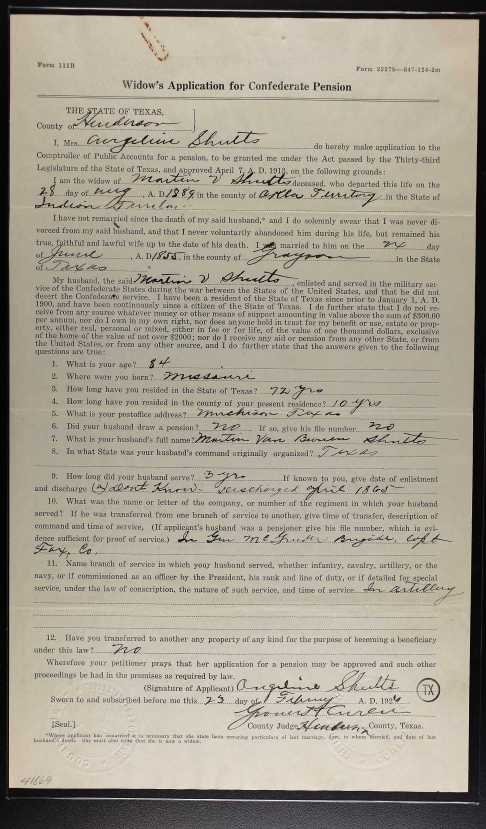 Form 111B
Form 22275—847-124-2m
Widow's Application for Confederate Pension
THE STATE OF TEXAS,
County of Henderson
I, Mrs. Angeline Shutts do hereby make application to the
Comptroller of Public Accounts for a pension, to be granted me under the Act passed by the Thirty-third
Legislature of the State of Texas, and approved April 7, A. D. 1913, on the following grounds:
I am the widow of Martin V Shutts deceased, who departed this life on the
28 day of Aug, A. D. 1889, in the county of Territory in the State of
Indian
I have not remarried since the death of my said husband,* and I do solemnly swear that I was never di-
vorced from my said husband, and that I never voluntarily abandoned him during his life, but remained his
true, faithful and lawful wife up to the date of his death. I was married to him on the day
of June, A. D. in the county of Grayson in the State
of Texas
My husband, the said Martin V Shutts, enlisted and served in the military ser-
vice of the Confederate States during the war between the States of the United States, and that he did not
desert the Confederate service. I have been a resident of the State of Texas since prior to January 1, A. D.
1900, and have been continuously since a citizen of the State of Texas. I do further state that I do not re-
ceive from any source whatever money or other means of support amounting in value above the sum of $500.00
per annum, nor do I own in my own right, nor does anyone hold in trust for my benefit or use, estate or prop-
erty, either real, personal or mixed, either in fee or for life, of the value of one thousand dollars, exclusive
of the home of the value of not over $2000; nor do I receive any aid or pension from any other State, or from
the United States, or from any other source, and I do further state that the answers given to the following
questions are true:
1. What is your age? 84
2. Where were you born? Missourie
3. How long have you resided in the State of Texas? 72 yrs
4. How long have you resided in the county of your present residence? 10 yrs
5. What is your postoffice address? Murchison Texas
6. Did your husband draw a pension? No If so, give his file number no
7. What is your husband's full name? Martin Van Buren Shutts
8. In what State was your husband's command originally organized? Texas
9. How long did your husband serve? 3 yrs If known to you, give date of enlistment
and discharge Dont Know. Discharged April 1865
10. What was the name or letter of the company, or number of the regiment in which your husband
served? If he was transferred from one branch of service to another, give time of transfer, description of
command and time of service. (If applicant's husband was a pensioner give his file number, which is evi-
dence sufficient for proof of service.) In Gen McGruder Brigade, Capt
Fox, Co.
11. Name branch of service in which your husband served, whether infantry, cavalry, artillery, or the
navy, or if commissioned as an officer by the President, his rank and line of duty, or if detailed for special
service, under the law of conscription, the nature of such service, and time of service In artillery
12. Have you transferred to another any property of any kind for the purpose of becoming a beneficiary
under this law? No
Wherefore your petitioner prays that her application for a pension may be approved and such other
proceedings be had in the premises as required by law.
(Signature of Applicant) Angeline Shutts
TX
Sworn to and subscribed before me this 23 day of A. D. 192
[Seal.]
County Judge Henderson County, Texas.
41669